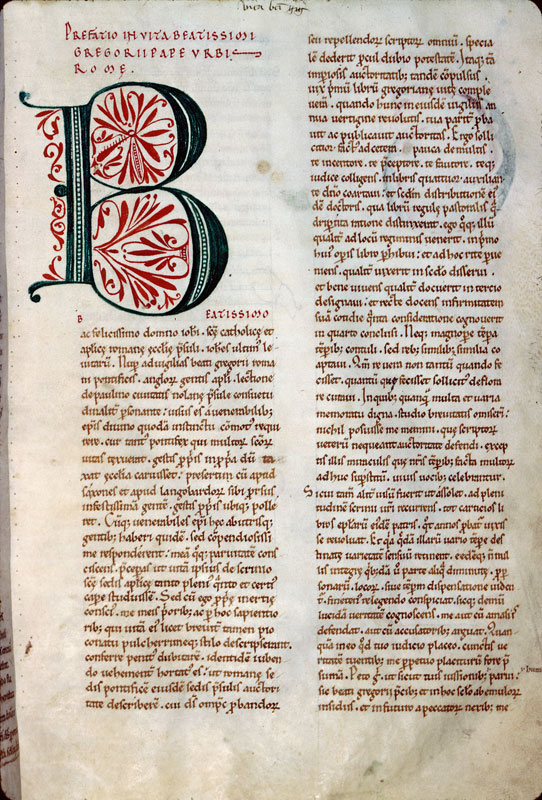 Prefatio in vita beatissimi
Gregorii pape urbi
Rome.
B
eatissimo
ac felicissimo domno iohi. scę catholicę et
aplicę romanę ęcclię pręsuli. iohes ultim' le
uitarū. Nup ad uigilias beati gregorii roma
ni pontificis. anglorꝫ gentis apli. lectione
de paulino ciuitatis nolanę pręsule consueti
dinalit psonante: uisus es a uenerabilib;
epis diuino quodā instinctu cōmot' requi
rere. cur tant' pontifex qui multorꝫ scorꝫ
uitas texuerit. gestis ppiis in ppa dū ta
xat ęcclia caruisset. presertim cū apud
saxones et apud langobardorꝫ sibi prsus
infestissimā gentē. gestis ppiis ubiq; polle
ret. Cūq; uenerabiles epi hęc abutrisq;
gentib; haberi quidē. sed cōpendiosissi
me responderent. meā q; paruitatē cons
cisceris. pcepas ut uitā ipsius de scrinio
scę sedis aplicę tanto pleni' qnto et certi'
cape studuisse. Sed cū ego ppe inertię
consci'. me meis priorib; ac p hoc sapientio
rib; qui uitā ei' licet breuit tamen pro
conatu pulcherrimeq; stilo descripserant.
conferre penit' dubitarē. identidē iuben
do uehement' hortat' es: ut romanę se
dis pontificē eiusdē sedis pręsulis auctor
itate describerē. cui dis omps pbandorꝫ
seu repellendorꝫ scriptorꝫ omniū. specia
lē dederit pcul dubio potestatē. Itaq; tā
impiosis auctoritatib; tandē cōpulsus.
uix pmū librū gregorianę uitę comple
uerā. quando hunc in eiusdē uigiliis an
nua uertigine reuolutis. tua pat'nt pba
uit ac publicauit auctoritas. Ergo solli
citior fact' ad cetera. pauca de multis.
te incentore. te pceptore. te fautore. teq;
iudice colligens. in libris quattuor auxilian
te dño coartaui: et sedm distributionē ei'
dē doctoris. qua librū regulę pastoralis
ratione distinxerit. ego q; illū
qualit ad locū regiminis uenerit. in prmo
hui' opis libro pbib;: et ad hoc rite pue
niens. qualit uixerit in sedo disserui.
et bene uiuens qualit docuerit in tercio
designaui. et recte docens infirmitatem
suā cotidie qnta consideratione cognouerit
in quarto conclusi. Neq; magnope tēpa
tēpib; contuli. sed reb; similib; similia co
aptaui. Qm re uera non tantū quando fe
cisset. quantū qd fecisset sollicit' deflora
re curaui. In quib; quamq; multa et uaria
memoratu digna. studio breuitatis omiserī:
nichil posuisse me memini. que scriptorꝫ
ueterū nequeant auctoritate defendi. excep
tis illis miraculis que nris tēpib; facta multorꝫ
ad huc supstitū. uiuis uocib; celebrantur.
Sicui tam alit uisū fuerit ut assolet. ad pleni
tudinē scrinii uri recurrens. tot carticios li
bros eplarū eiusdē patris. qt annos pbat uixis
se reuoluat. Et qa qdā illarū uario tēpe des
tinatę uarietatē sensuū retinent. eedēq; in nul
lis integrę quibdā u' parte aliq diminutę. p
sonarū. locorꝫ. siue tēpm dispensatione uiden
t'. funeten' relegendo conspiciat. sicq; demū
lucida ueritate cognoscens. me aut cū amasis
defendat. aut cū accusatorib; arguat. Quan
qua in eo qd tuo iudicio placeo. cunctis ue
ritatē tuentib; me ppetuo placiturū fore p
sumā. Peto g'. ut sicut tuis iussionib; parui.
sic beati gregorii pcib; et in hoc sclo ab emulorꝫ
insidiis. et in futuro a peccatorꝫ nexib; me